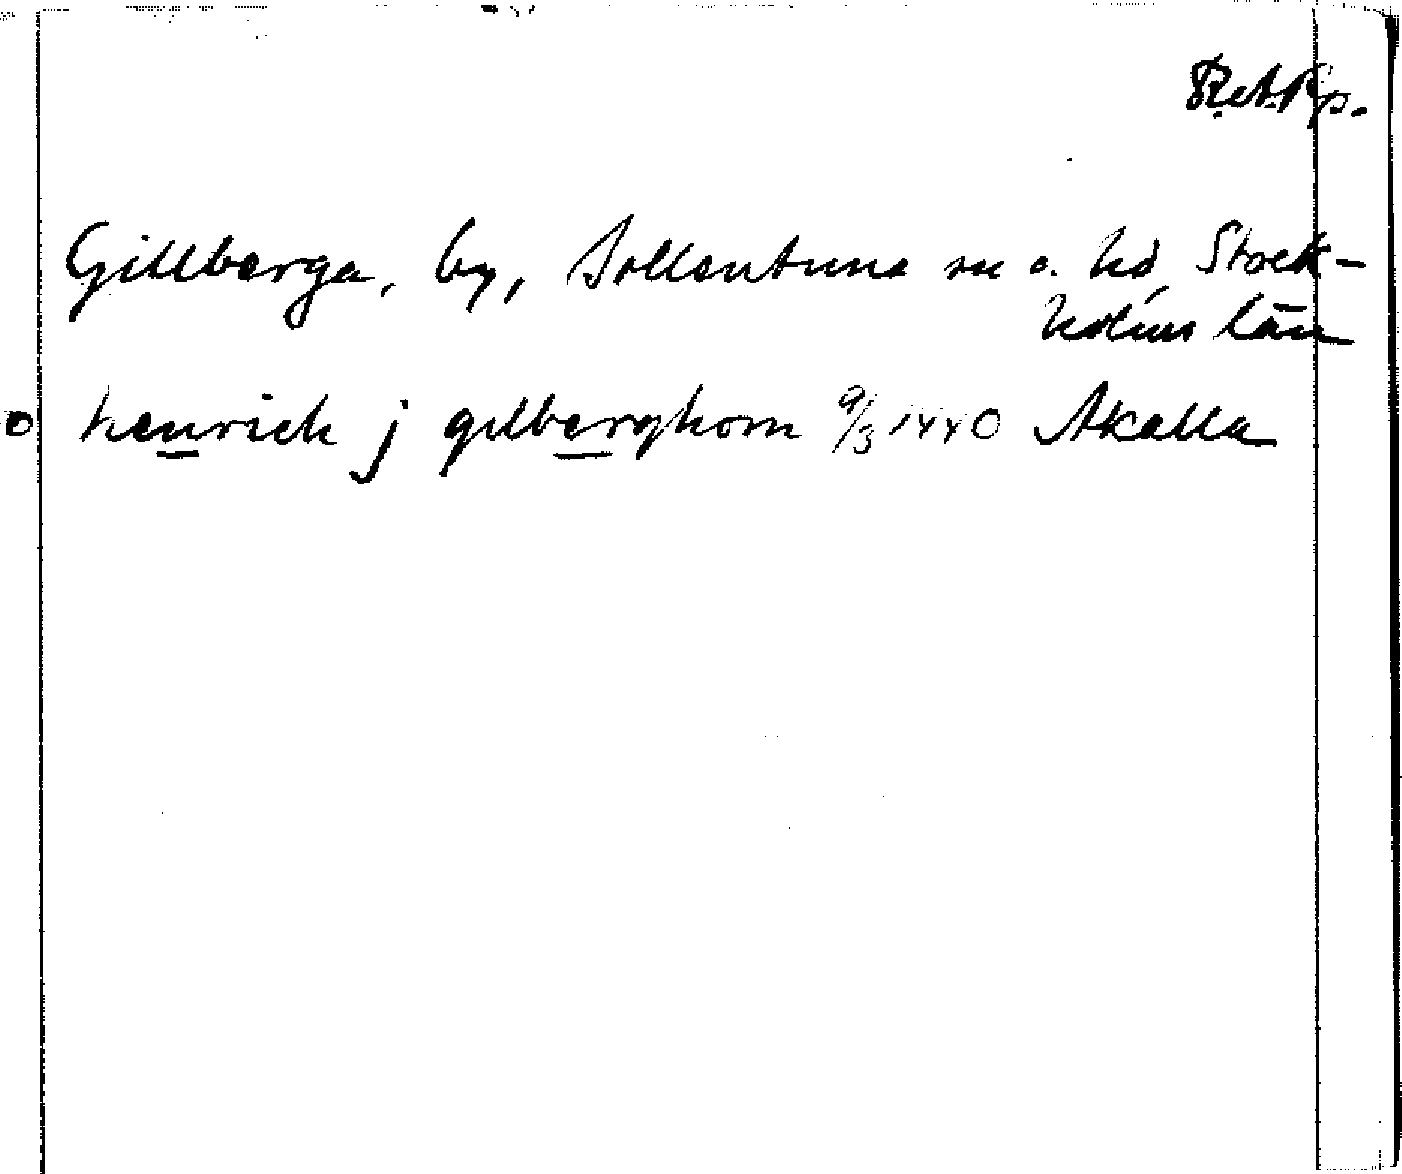 RA. Pp.
Gillberga, by, Sollentuna sn o. hd, Stock-
holms län
o henrich j gilberghom 9/3 1440 Akalla